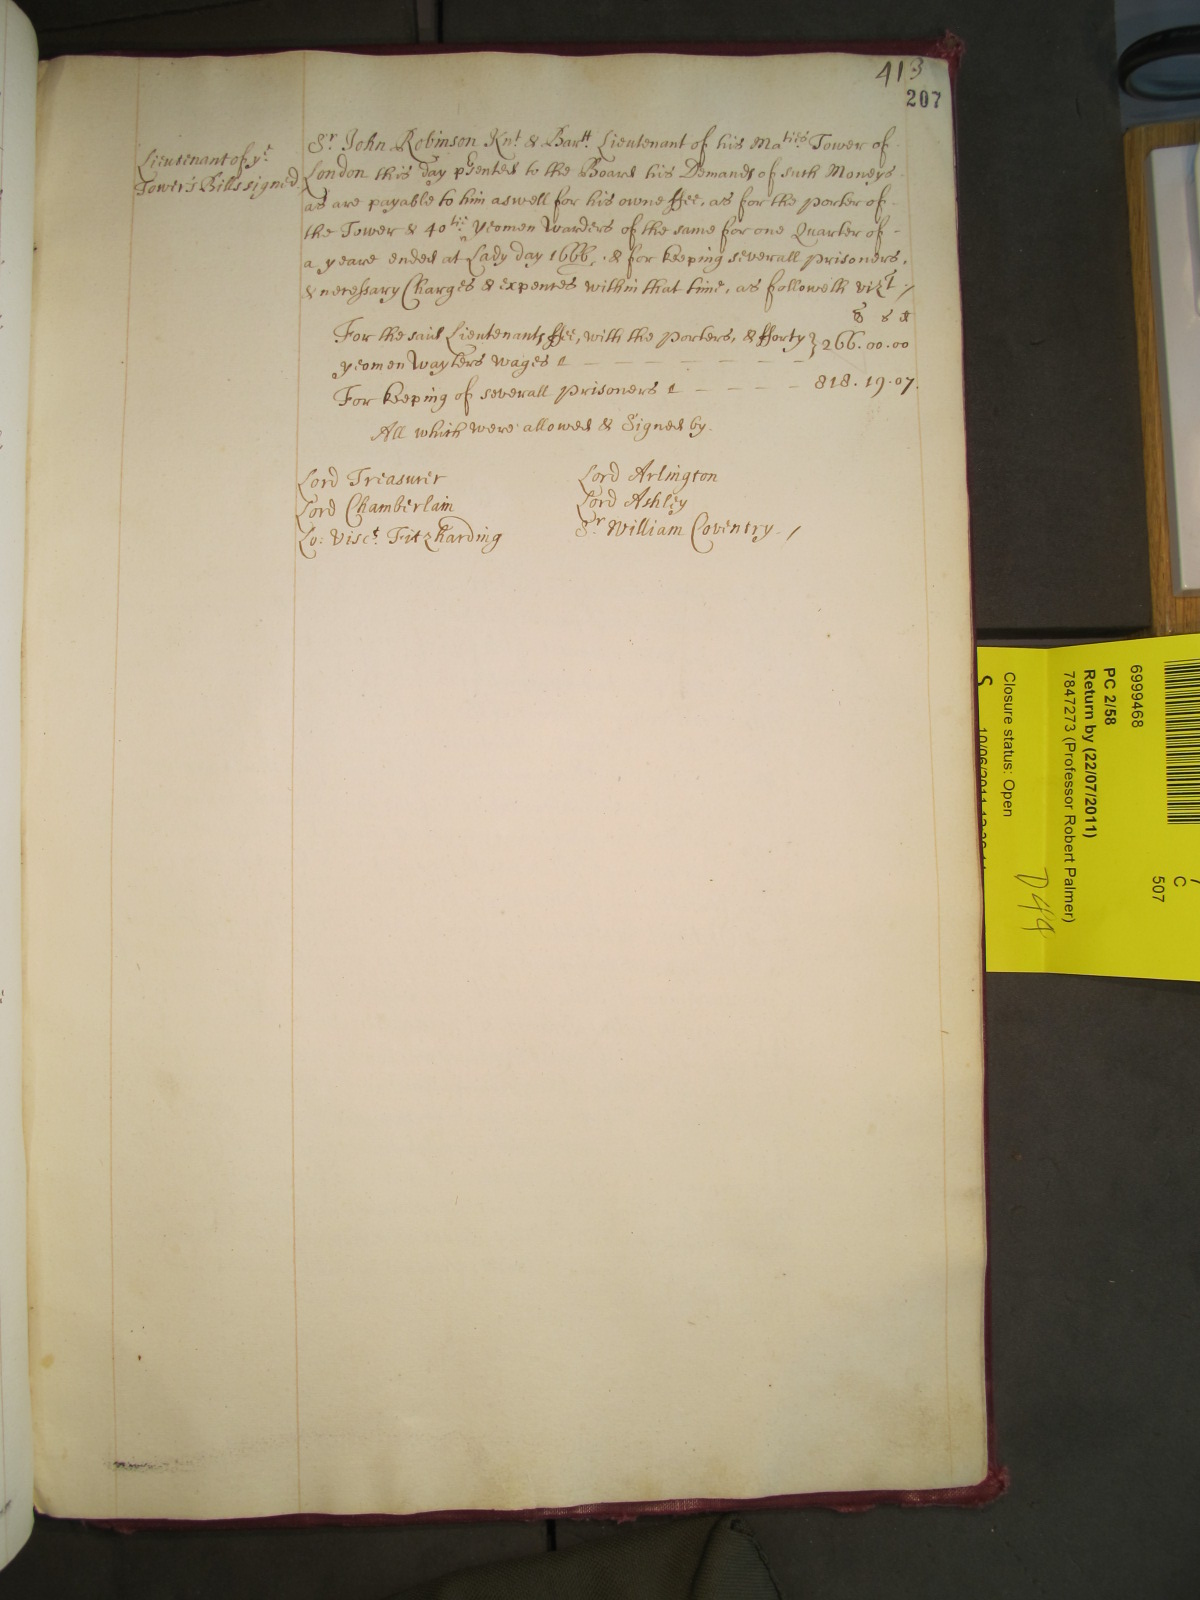 413
207
Lieutenant of ye
Tower's Bills signed
Sr John Robinson Knt & Bartt Lieutenant of his Maties Tower of
London this day pſented to the Board his Demands of such Moneys
as are payable to him aswell for his owne ffee, as for the Porter of
the Tower & 40tie Yeomen Warders of the same for one Quarter of
a yeare ended at Lady day 1666, & for keeping severall prisoners,
& necessary Charges & expences within that time, as followeth vizt /
li s d
For the said Lieutenants ffee, with the Porters, & fforty } 266.00.00
yeomen Wayters Wages
For keeping of severall prisoners — — — — 818.19.07.
All which were allowed & Signed by.
Lord Treasurer Lord Arlington
Lord Chamberlain Lord Ashley
Lo: Visct. Fitzharding Sr William Coventry. /
6999468
PC 2/58
Return by (22/07/2011)
7847273 (Professor Robert Palmer)
Closure status: Open
10/06/2011
C
507
D49